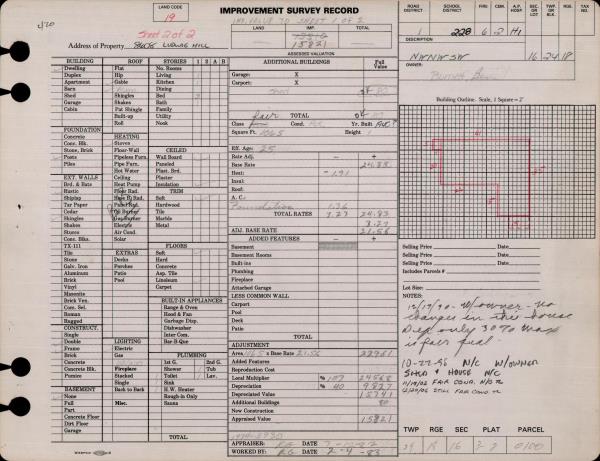 LAND CODE
19
IMPROVEMENT SURVEY RECORD
Sheet 2 of 2
Address of Property
LAND
IMP.
TOTAL
15821
ASSESSED VALUATION
ROAD DISTRICT
SCHOOL DISTRICT
FIRE
CEM.
A.P. HOSP.
SEC. OR LOT
TWP. OR BLK.
RGE.
TAX NO.
228 6 2 H1
DESCRIPTION
NWNWSW 16 24 18
OWNER:
BUILDING
Dwelling
Duplex
Apartment
Barn
Shed
Garage
Cabin
ROOF
Flat
Hip
Gable
Shingles
Shakes
Pat Shingle
Built-up
Roll
STORIES 1 2 A B
No. Rooms
Living
Kitchen
Dining
Bed
Bath
Family
Utility
Nook
FOUNDATION
Concrete
Conc. Blk.
Stone, Brick
Posts
Piles
HEATING
Stoves
Floor-Wall
Pipeless Furn.
Pipe Furn.
Hot Water
Ceiling
Heat Pump
Floor Rad.
Base B. Rad.
Panel Rad.
Oil Burner
Gas Burner
Electric
Air Cond.
Solar
CEILED
Wall Board
Paneled
Plast. Brd.
Plaster
Insulation
TRIM
Soft
Hard
Tile
Marble
Metal
EXT. WALLS
Brd. & Bats
Rustic
Shiplap
Tar Paper
Cedar
Shingles
Shakes
Stucco
Conc. Blks.
TX-111
Tile
Stone
Galv. Iron
Aluminum
Brick
Vinyl
Masonite
Brick Ven.
Com. Sel.
Roman
Ragged
EXTRAS
Decks
Porches
Patio
Pool
FLOORS
Soft
Hard
Concrete
Asp. Tile
Linoleum
Carpet
BUILT-IN APPLIANCES
Range & Oven
Hood & Fan
Garbage Disp.
Dishwasher
Inter Com.
Bar-B-Que
CONSTRUCT.
Single
Double
Frame
Brick
Concrete
Concrete Blk.
Pumice
LIGHTING
Electric
Gas
Fireplace
Stacked
Single
Back to Back
PLUMBING
1st G. 2nd G.
Shower Tub
Toilet Lav.
Sink
H.W. Heater
Rough-in Only
Sauna
BASEMENT
None
Full
Part
Concrete Floor
Dirt Floor
Garage
Misc.
TOTAL
ADDITIONAL BUILDINGS
Full Value
Garage: X
Carport: X
Shed
80
fair TOTAL
Class Cond. Yr. Built
Square Ft. 1065 Height 1
Eff. Age: 25
Rate Adj. - +
Base Rate 24.83
Heat: -1.91
Insul:
Roof:
A. C.:
Foundation 1.36
TOTAL RATES 3.27 24.83
3.27
ADJ. BASE RATE 21.56
ADDED FEATURES - +
Basement
Basement Rooms
Built-ins
Plumbing
Fireplace
Attached Garage
LESS COMMON WALL
Carport
Pool
Deck
Patio
TOTAL
ADJUSTMENT
Area 1065 x Base Rate 21.56 22961
Added Features
Reproduction Cost
Local Multiplier % 107 24568
Depreciation % 40 9827
Depreciated Value 15741
Additional Buildings 80
New Construction
Appraised Value 15821
APPRAISER: RG DATE
WORKED BY: RG DATE 2-4-83
Building Outline. Scale, 1 Square = 2'
Selling Price Date
Selling Price Date
Selling Price Date
Includes Parcels #
Lot Size:
NOTES:
12/17/90 - W/owner - no
changes in this house
Dep only 30% max
is fair fuel.
10-22-96 N/C W/OWNER
SHED & HOUSE N/C
TWP RG SEC PLAT PARCEL
16
0100